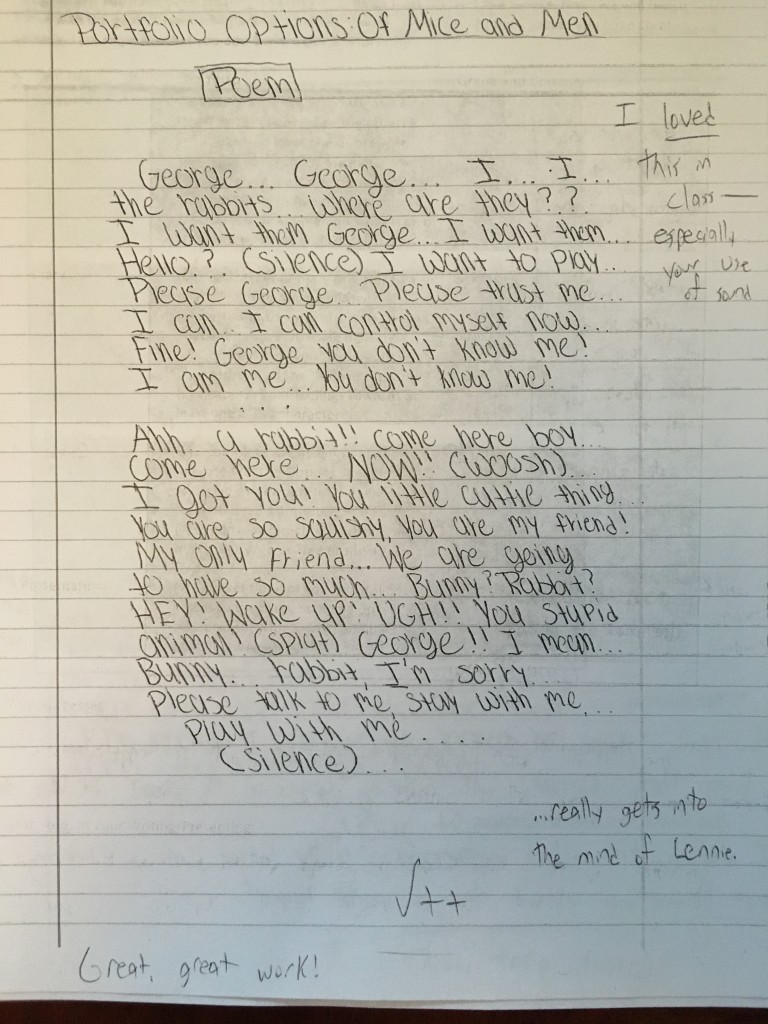 Portfolio Options: Of Mice and Men
Poem
I loved
this in
class—
especially
your use
of sound
George... George... I... I...
the rabbits... where are they??
I want them George... I want them...
Hello.?. (Silence) I want to play...
Please George... Please trust me...
I can.. I can control myself now...
Fine! George you don't know me!
I am me... You don't know me!
...
Ahh a rabbit!! come here boy...
come here... NOW!! (woosh)...
I got you! You little cuttie thing...
You are so squishy, you are my friend!
My only friend... We are going
to have so much... Bunny? Rabbit?
HEY! Wake up! UGH!! You stupid
animal! (splat) George!! I mean...
Bunny... rabbit, I'm sorry...
Please talk to me, stay with me...
play with me....
(Silence)...
...really gets into
the mind of Lennie.
√++
Great, great work!